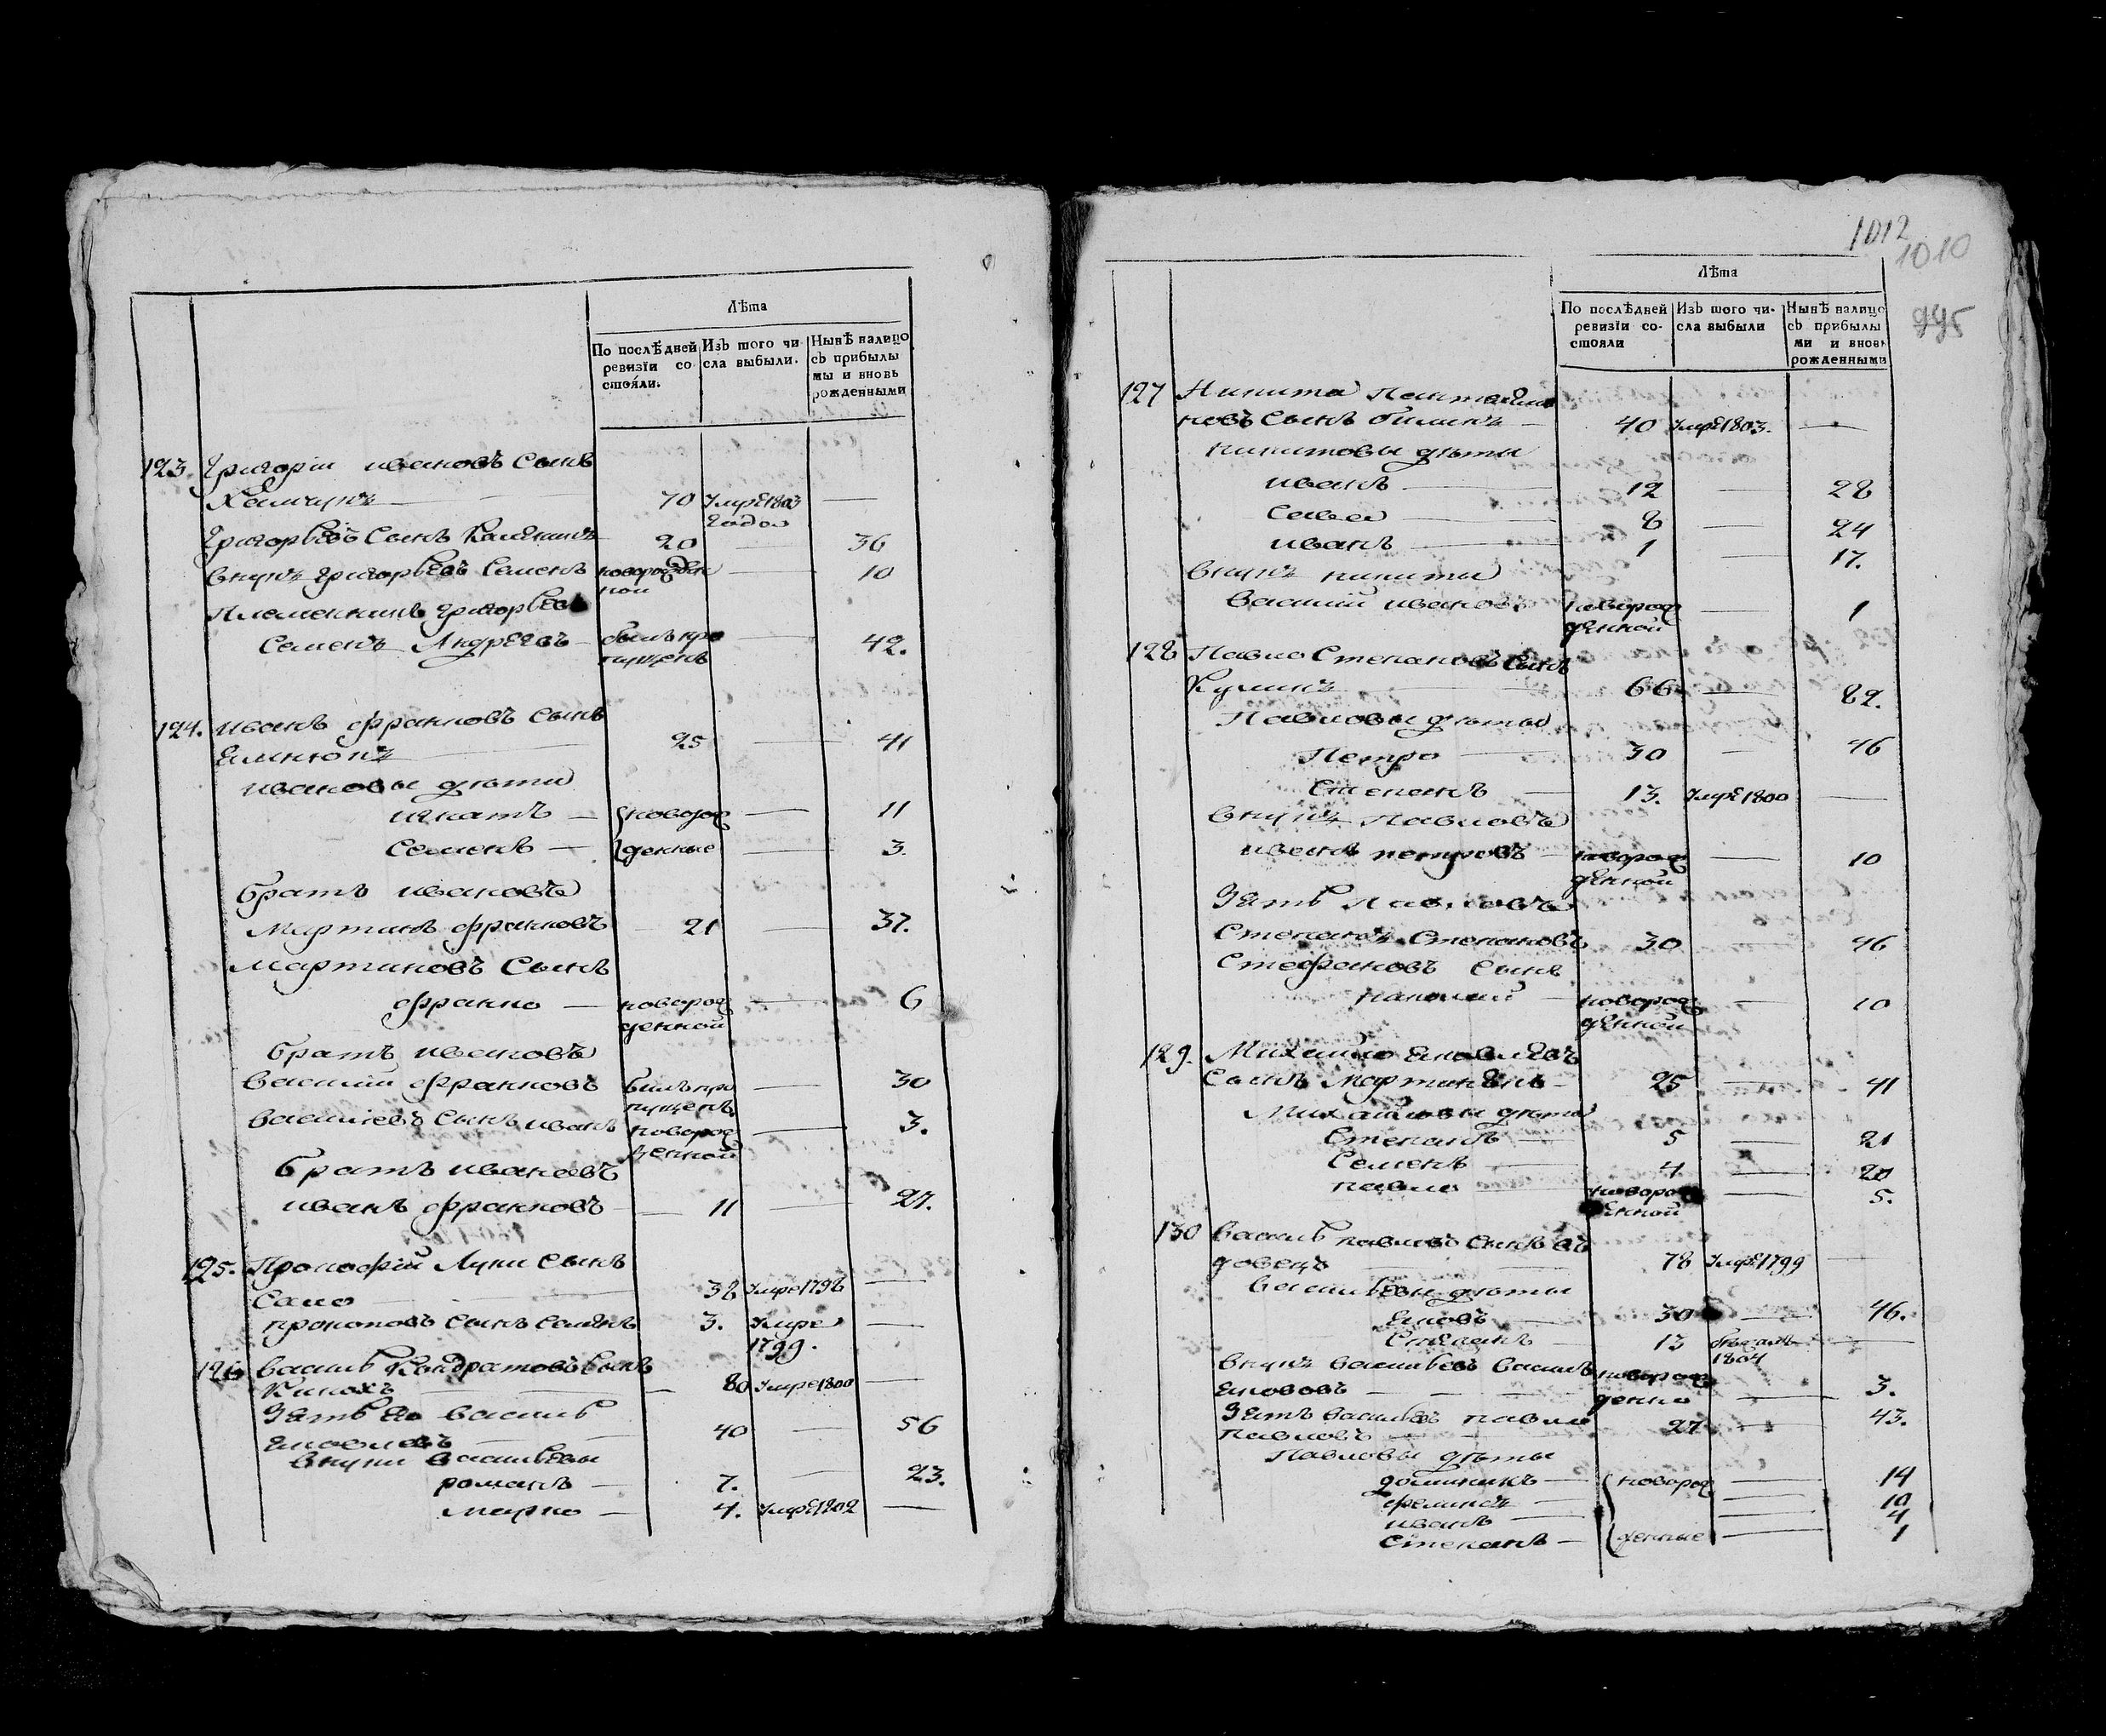 Лѣта
По послѣдней ревизіи со стояли.
Изъ того чи сла выбыли.
Нынѣ налицо съ прибылы мы и вновь рожденными
123. Григорій ивановъ Сынъ
70 Умре 1803 года —
Григорьевъ Сынъ 20 — 36
внукъ Григорьевъ Семенъ новорожден ной — 10
Племенникъ Григорьевъ
Семенъ Андреевъ — былъ про пущенъ — 42.
124. иванъ франковъ Сынъ
25 — 41
ивановы дѣти
игнатъ — новорож — 11
Семенъ — денные — 3.
братъ ивановъ
Мартинъ франковъ 21 — 37.
Мартиновъ Сынъ
франко — новорож денной — 6
братъ ивановъ
василій франковъ былъ про пущенъ — 30
василіевъ Сынъ иванъ новорож денной — 3.
братъ ивановъ
иванъ франковъ — 11 — 27.
125. Прокофій Луки Сынъ
Сало 38 Умре 1798 —
прокоповъ Сынъ Семенъ 3. Умре 1799. —
126 василь Кондратовъ Сынъ
— 80 Умре 1800 —
Зять его василь
яковлевъ 40 — 56
внуки васильевы
романъ — 7. — 23.
марко — 4. Умре 1802 —
1012
1010
995
Лѣта
По послѣдней ревизіи со- стояли
Изъ того чи- сла выбыли
Нынѣ налицо съ прибылы ми и вновь рожденными
127 Никита
новъ Сынъ — 40 Умре 1803. —
никитовы дѣти
иванъ 12 — 28
Савва 8 — 24
иванъ 1 — 17.
внукъ никиты
василій ивановъ новорож денной — 1
128 Павло Степановъ Сынъ
66 — 82.
Павловы дѣты
Петро 30 — 46
Степанъ — 13. Умре 1800 —
внукъ Павловъ
иванъ петровъ — новорож денной — 10
Зять Павловъ
Степанъ Степановъ 30 — 46
Стефановъ Сынъ
— новорож денной — 10
129. Михайло яковлевъ
Сынъ — 25 — 41
Михайловы дѣти
Степанъ — 5 — 21
Семенъ — 4 — 20
павло новорож денной — 5.
130 василь павловъ Сынъ въ
довецъ 78 Умре 1799 —
васильевы дѣты
яковъ — 30 — 46.
Степанъ — 13 бежалъ 1804 —
внукъ васильевъ василь новорож
яковъ — денно — 3.
Зять васильевъ павло 27 — 43.
павловъ —
Павловы дѣты
доминикъ — новорож — 14
— — 10
иванъ — — 4
Степанъ — денные — 1